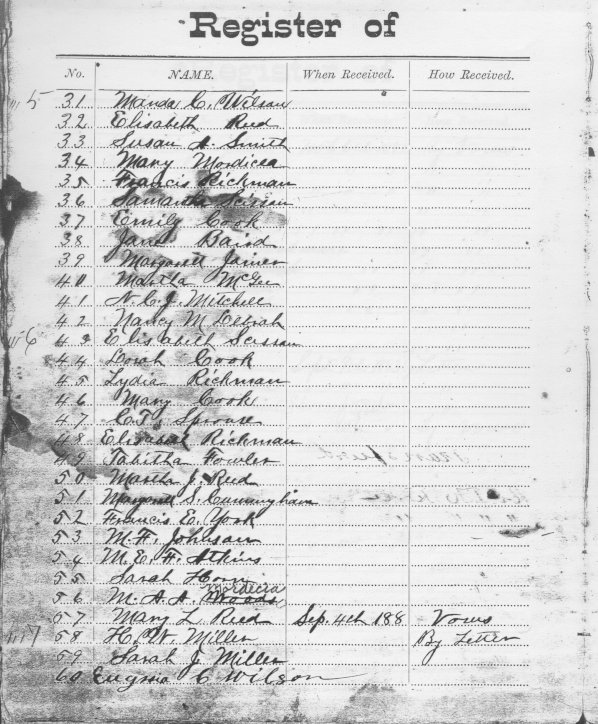 Register of
No. NAME. When Received. How Received.
31 Manda C. Wilson
32 Elisabeth Reed
33 Susan A. Smith
34 Mary Mordicea
35 Francis Richman
36 Samantha Scisson
37 Emily Cook
38 Jane Baird
39 Margarett Joiner
40 Malitha McGee
41 N. C. J. Mitchell
42 Nancy M
43 Elisabeth Scisson
44 Dorah Cook
45 Lydia Richman
46 Mary Cook
47 C. T. Sprouse
48 Elisabeth Richman
49 Tabitha Fowler
50 Martha J. Reed
51 Margarett S. Cunningham
52 Francis E. York
53 M. F. Johnson
54 M. E. F. Atkins
55 Sarah Horn
Mordecia
56 M. A. A. Woods
57 Mary L Reed Sep. 4th 188 Vows
58 H. W. Miller By Letter
59 Sarah J Miller
60 C Wilson